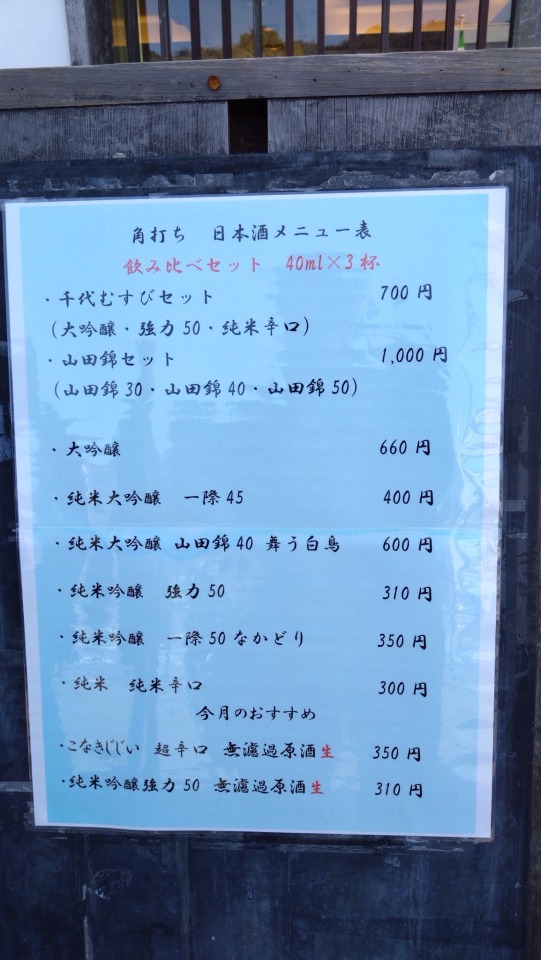 角打ち 日本酒メニュー表
飲み比べセット 40ml×3杯
・千代むすびセット 700円
(大吟醸・強力50・純米辛口)
・山田錦セット 1,000円
(山田錦30・山田錦40・山田錦50)
・大吟醸 660円
・純米大吟醸 一際45 400円
・純米大吟醸 山田錦40 舞う白鳥 600円
・純米吟醸 強力50 310円
・純米吟醸 一際50なかどり 350円
・純米 純米辛口 300円
今月のおすすめ
・こなきじじい 超辛口 無濾過原酒生 350円
・純米吟醸強力50 無濾過原酒生 310円